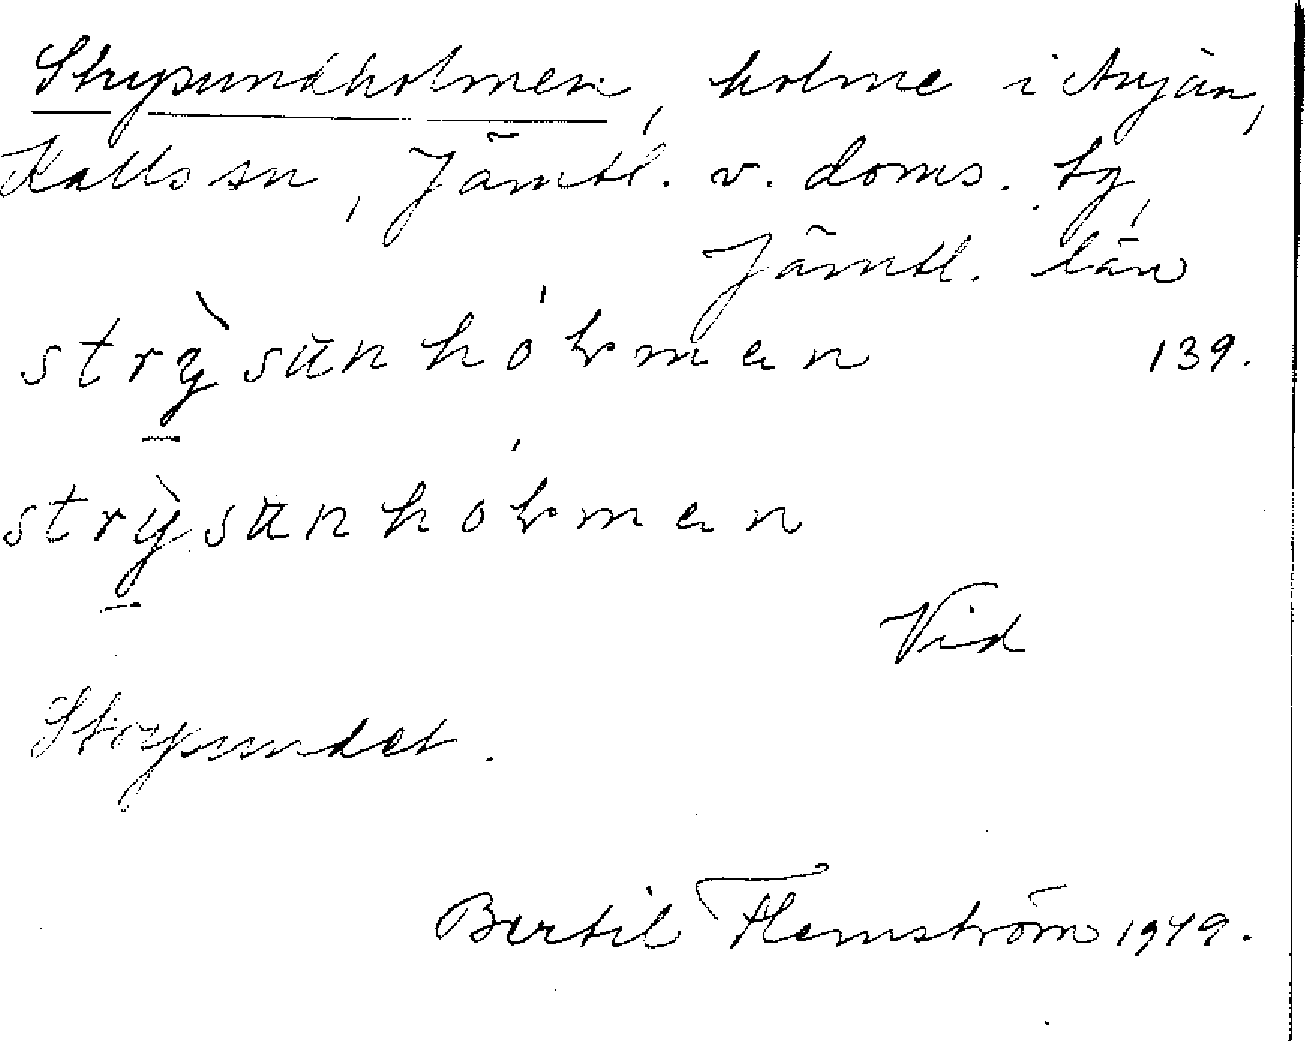 Strysundholmen, holme i Anjän,
Kalls sn, Jämtl. v. doms. tg,
Jämtl. län
strỳsunhólman 139.
strỳsunhólman
Vid
Strysundet.
Bertil Flemström 1949.